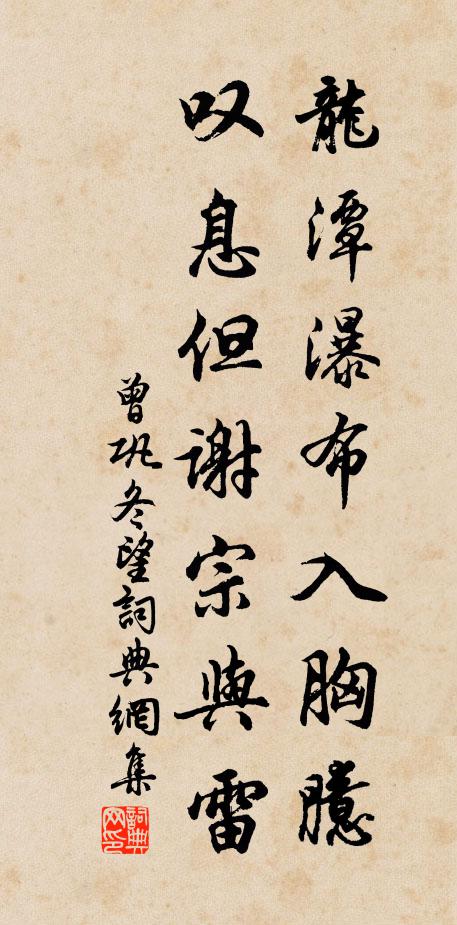 龍潭瀑布入胸臆
叹息但謝宗與雷
曾巩冬望詞典網集
詞典网印